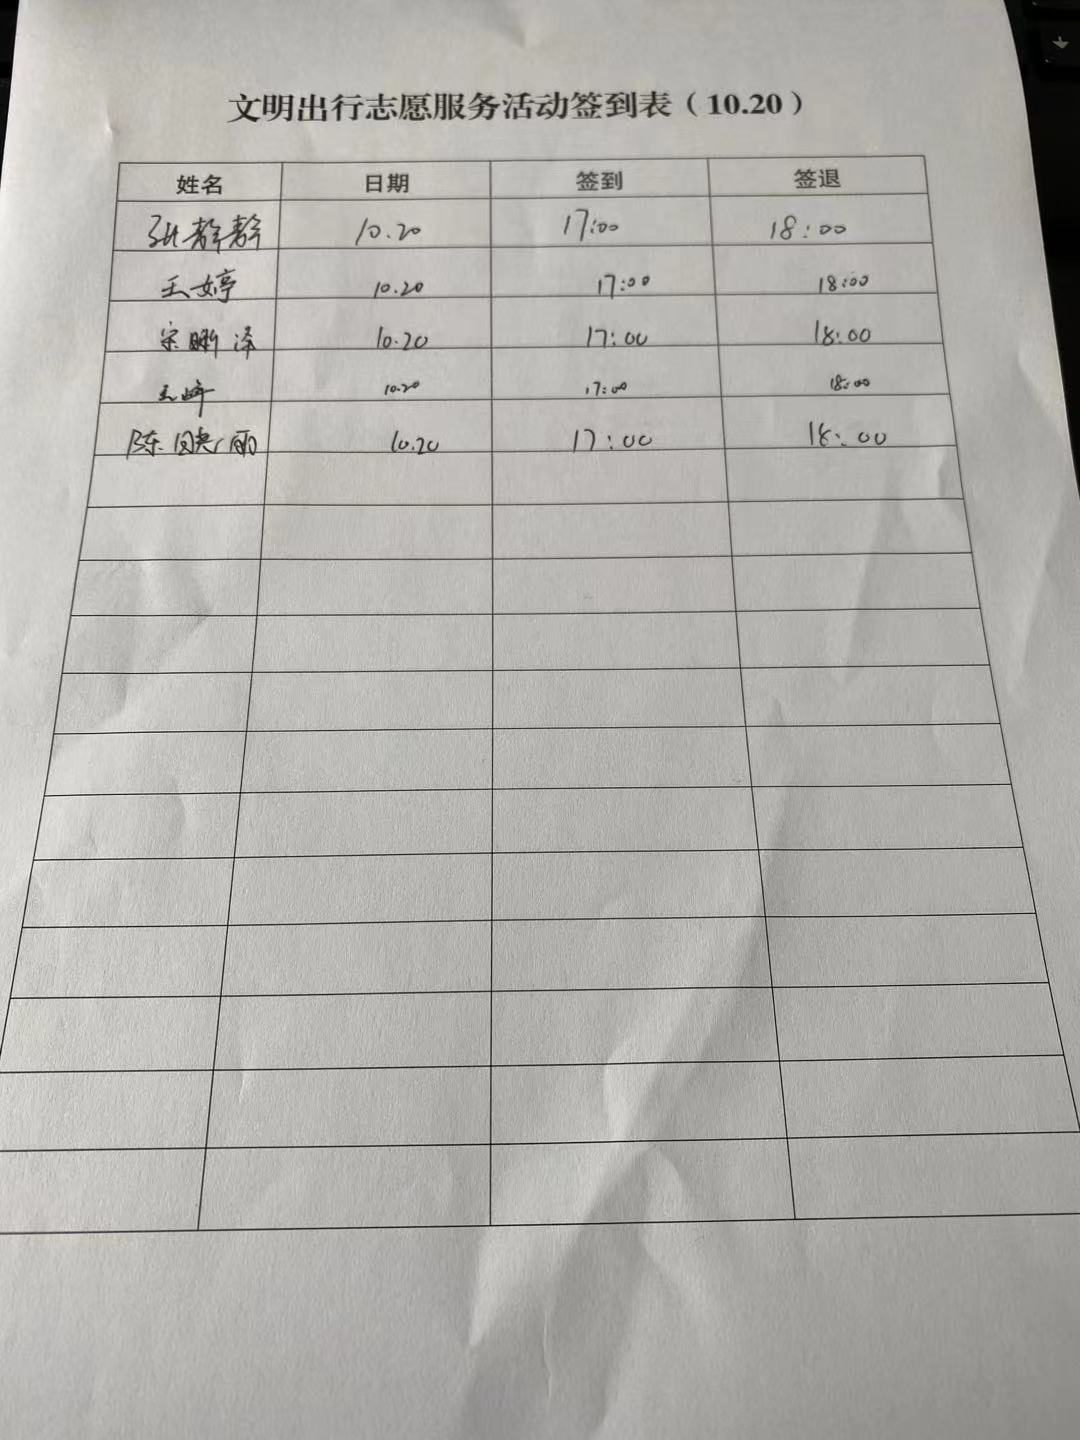 文明出行志愿服务活动签到表（10.20）
姓名 日期 签到 签退
张静静 10.20 17:00 18:00
王婷 10.20 17:00 18:00
宋 泽 10.20 17:00 18:00
王 10.20 17:00 18:00
陈晓丽 10.20 17:00 18:00